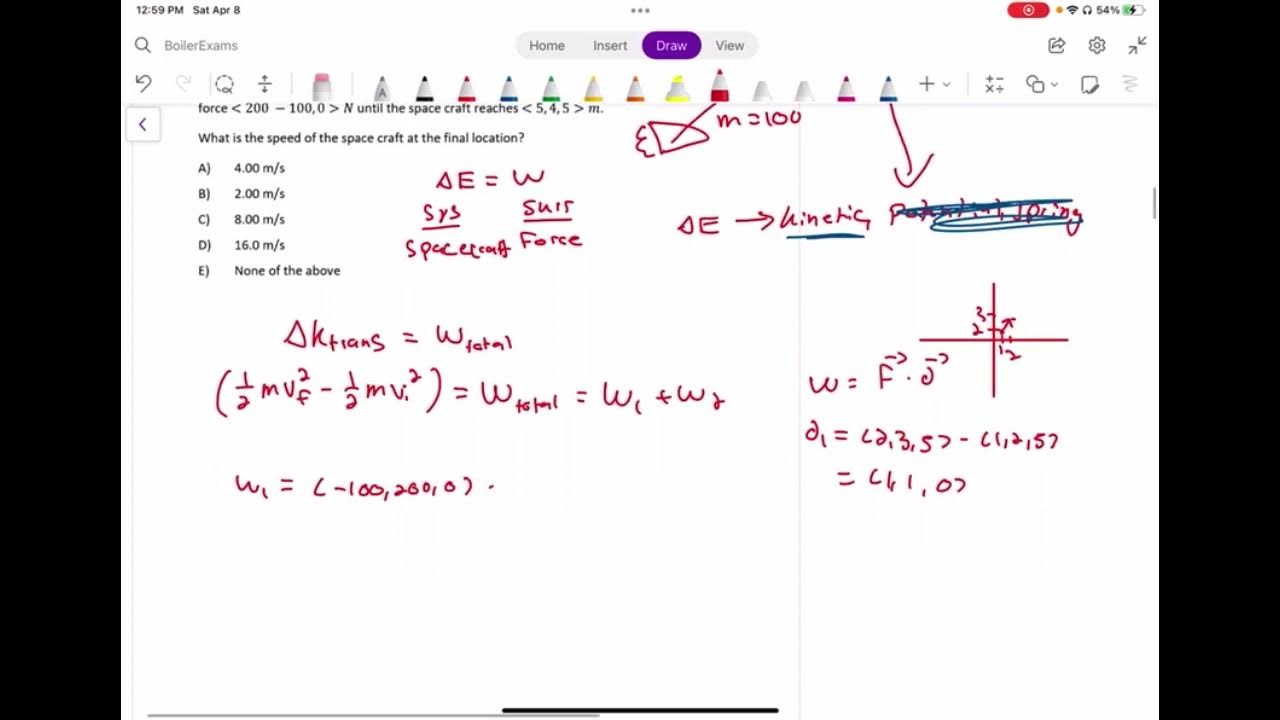 12:59 PM Sat Apr 8
54%
BoilerExams
Home Insert Draw View
force < 200 − 100, 0 > N until the space craft reaches < 5, 4, 5 > m.
What is the speed of the space craft at the final location?
A) 4.00 m/s
B) 2.00 m/s
C) 8.00 m/s
D) 16.0 m/s
E) None of the above
m = 100
ΔE = W
Sys Surr
Spacecraft Force
ΔE → Kinetic, Potential, Spring
ΔKtrans = Wtotal
(½ m vf² − ½ m vi²) = Wtotal = W1 + W2
W1 = ⟨-100, 200, 0⟩ ·
3
2
1 2
W = F⃗ · ∂⃗
∂1 = ⟨2, 3, 5⟩ − ⟨1, 2, 5⟩
= ⟨1, 1, 0⟩